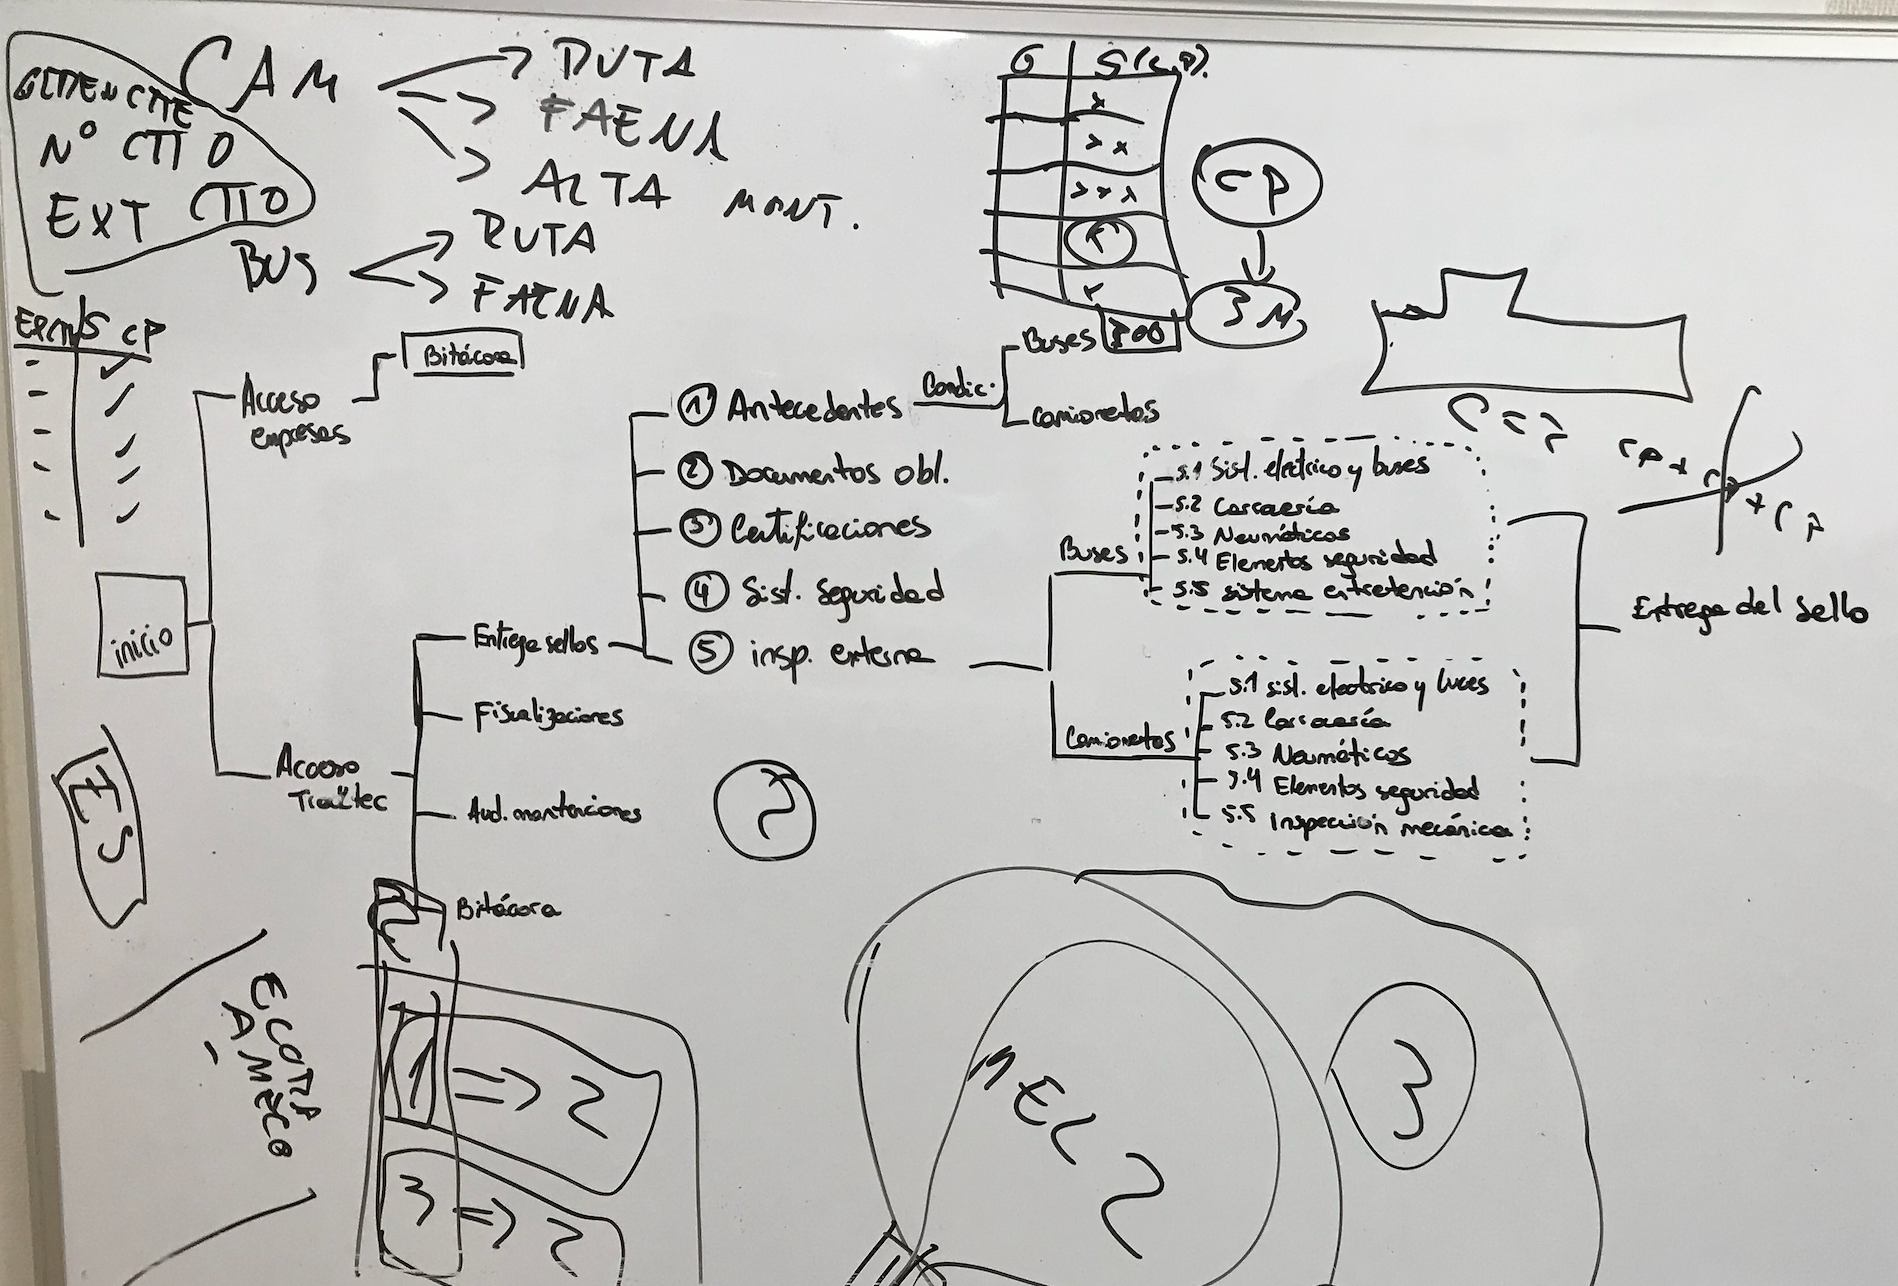 CAM
RUTA
FAENA
ALTA MONT.
Nº CTTO
EXT CTTO
BUS
RUTA
FAENA
G
CP
3M
CP
Acceso
empresas
Bitácora
inicio
Acceso
Entrega sellos
Fiscalizaciones
Aud. mantenciones
Bitácora
① Antecedentes
② Documentos obl.
③ Certificaciones
④ Sist. Seguridad
⑤ insp. externa
Condic.
Buses
Camionetas
Buses
5.1 Sist. electrico y buses
5.2 Carrocería
5.3 Neumáticos
5.4 Elementos seguridad
5.5 sistema entretención
Camionetas
5.1 sist. electrico y luces
5.2 Carrocería
5.3 Neumáticos
5.4 Elementos seguridad
5.5 Inspección mecánica
Entrega del sello
2
ES
1 => 2
3 => 2
MEL 2
3